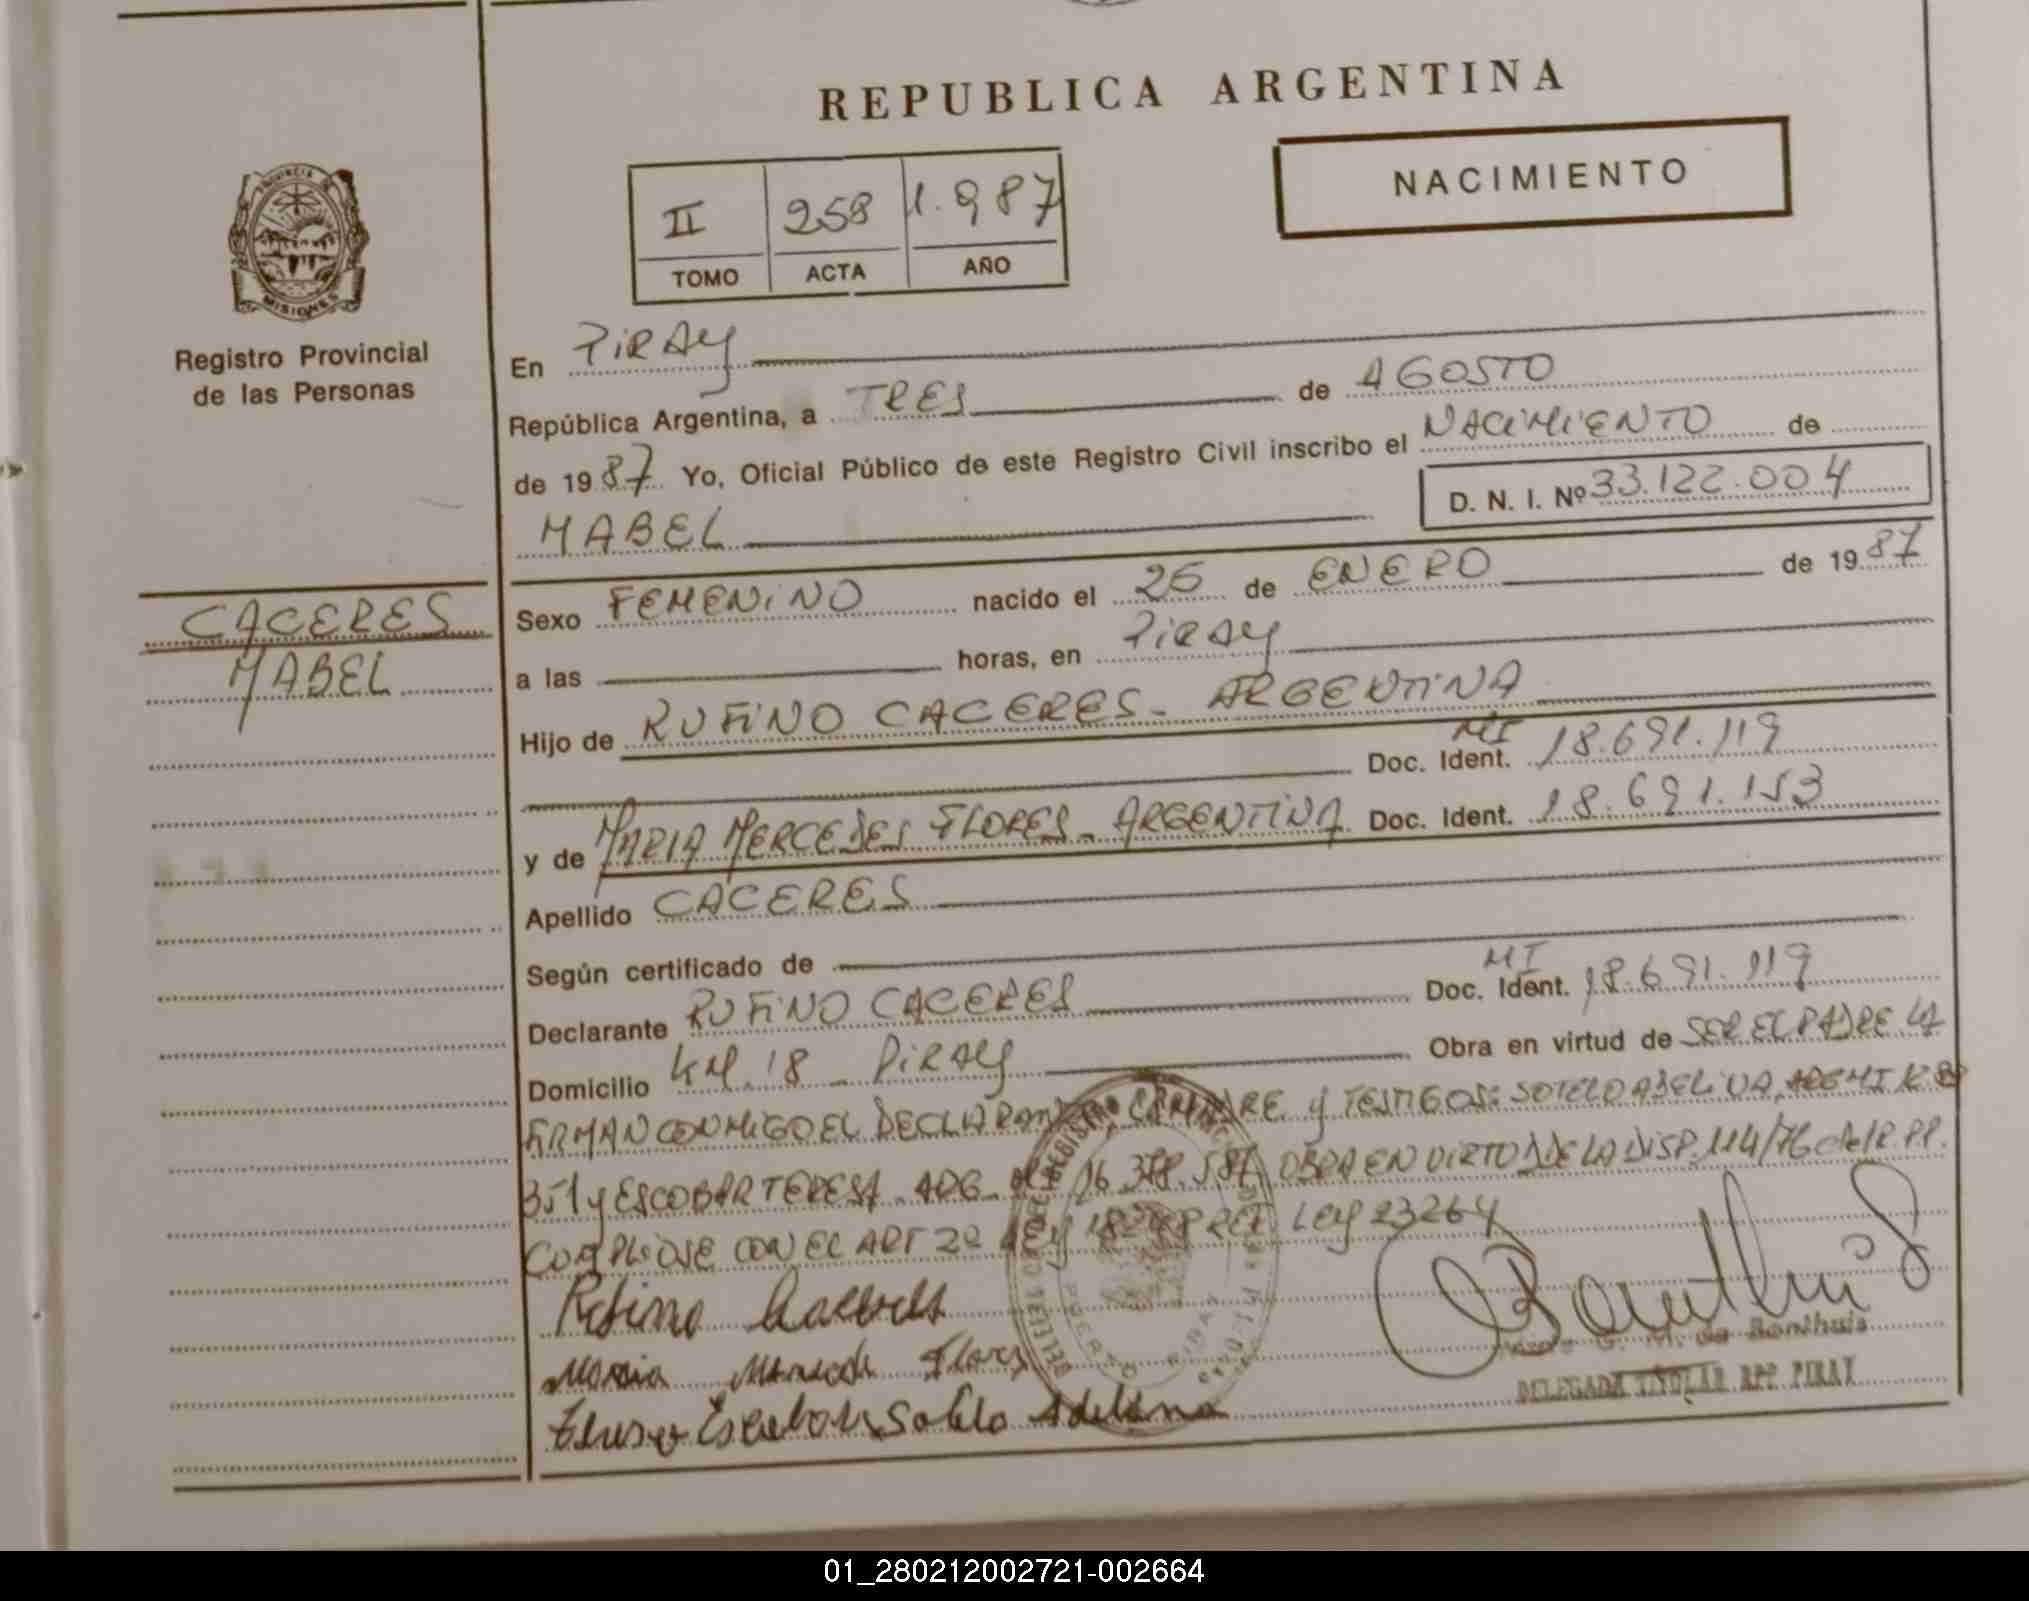 REPUBLICA ARGENTINA
NACIMIENTO
II 258 1.987
TOMO ACTA AÑO
PROVINCIA DE
MISIONES
Registro Provincial
de las Personas
En PiRAY
República Argentina, a TRES de AGOSTO
de 1987 Yo, Oficial Público de este Registro Civil inscribo el NACiMiENTO de
D. N. I. Nº 33.122.004
MABEL
CACERES
MABEL
Sexo FEMENiNO nacido el 26 de ENERO de 1987
a las horas, en PiRAY
Hijo de RUFiNO CACERES - ARGENTiNA
Doc. Ident. MI 18.691.119
y de MARIA MERCEDES FLORES - ARGENTINA Doc. Ident. 18.691.153
Apellido CACERES
Según certificado de
Declarante RUFiNO CACERES Doc. Ident. MI 18.691.119
Domicilio KM. 18 - PiRAY Obra en virtud de SER EL PADRE LA
FIRMAN CONMIGO EL DECLARANTE, y TESTIGOS: SOTELO
351 y ESCOBAR TERESA - ARG - 16.378.587, OBRA EN VIRTUD DE LA DISP. 114/76 del R.P.P.
COMPLiOSE CON EL ART 2º LEY 18248 LEY 23264
Rufino Caceres
Maria Mercede Flores
Teresa Escobar Sotelo Adelina
de Bonthuis
DELEGADA TITULAR RPP PIRAY
01_280212002721-002664